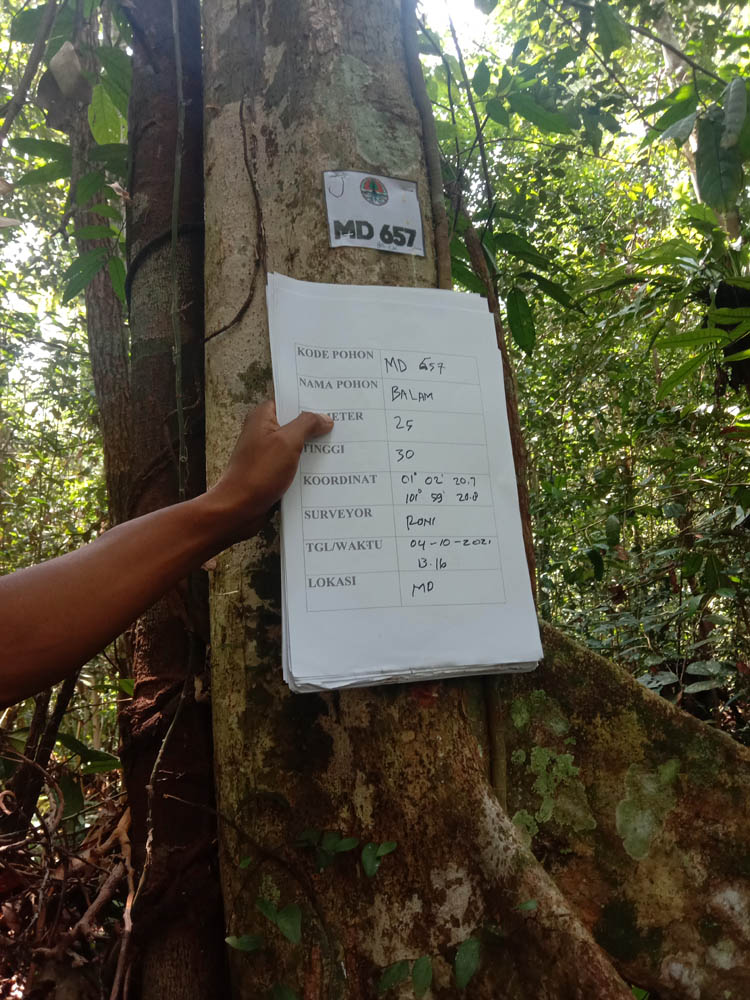 MD 657
KODE POHON MD 657
NAMA POHON BALAM
METER 25
TINGGI 30
KOORDINAT 01° 02' 20.7
101° 59' 20.8
SURVEYOR RONI
TGL/WAKTU 04-10-2021
13.16
LOKASI MD